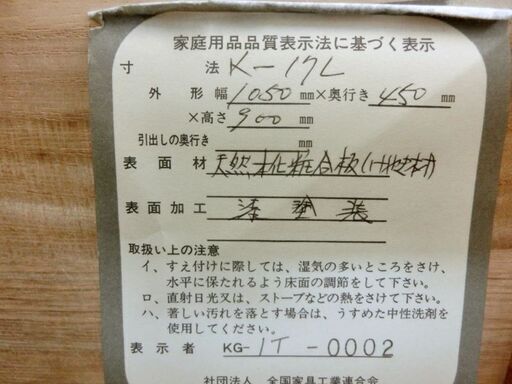 家庭用品品質表示法に基づく表示
寸法 K-17L
外形幅 1050 mm×奥行き 450 mm
×高さ 900 mm
引出しの奥行き mm
表面材 天然木化粧合板
表面加工 漆塗装
取扱い上の注意
イ、すえ付けに際しては、湿気の多いところをさけ、
水平に保たれるよう床面の調節をして下さい。
ロ、直射日光又は、ストーブなどの熱をさけて下さい。
ハ、著しい汚れを落とす場合は、うすめた中性洗剤を
使用してください。
表示者 KG-IT-0002
社団法人 全国家具工業連合会